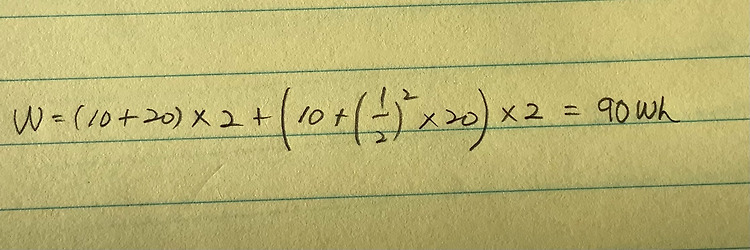 W = (10+20) × 2 + (10 + (1/2)² × 20) × 2 = 90 Wh